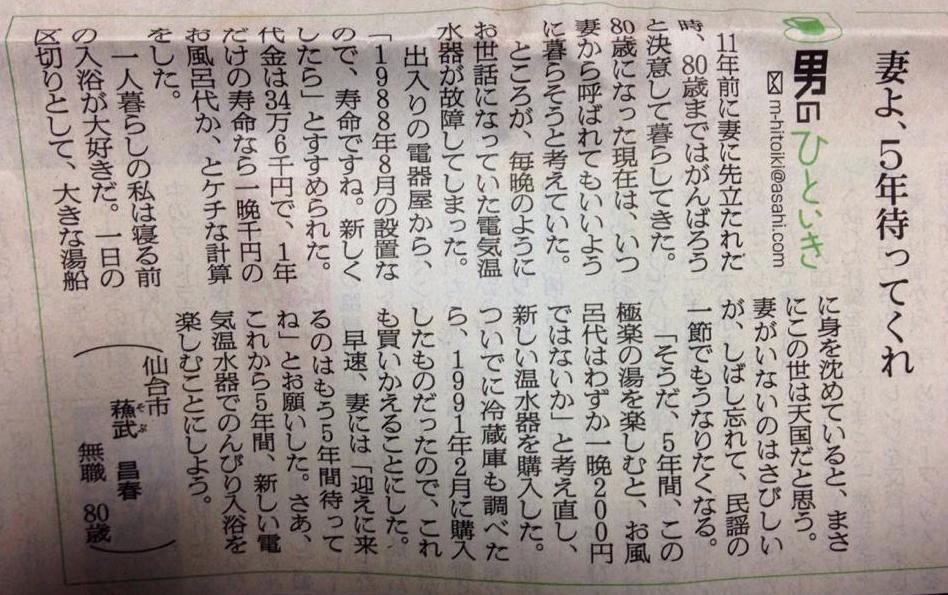 妻よ、5年待ってくれ
男のひといき
m-hitoiki@asahi.com
11年前に妻に先立たれた
時、80歳まではがんばろう
と決意して暮らしてきた。
80歳になった現在は、いつ
妻から呼ばれてもいいよう
に暮らそうと考えていた。
ところが、毎晩のように
お世話になっていた電気温
水器が故障してしまった。
出入りの電器屋から、
「1988年8月の設置な
ので、寿命ですね。新しく
したら」とすすめられた。
代金は34万6千円で、1年
だけの寿命なら一晩千円の
お風呂代か、とケチな計算
をした。
一人暮らしの私は寝る前
の入浴が大好きだ。一日の
区切りとして、大きな湯船
に身を沈めていると、まさ
にこの世は天国だと思う。
妻がいないのはさびしい
が、しばし忘れて、民謡の
一節でもうなりたくなる。
「そうだ、5年間、この
極楽の湯を楽しむと、お風
呂代はわずか一晩200円
ではないか」と考え直し、
新しい温水器を購入した。
ついでに冷蔵庫も調べた
ら、1991年2月に購入
したものだったので、これ
も買いかえることにした。
早速、妻には「迎えに来
るのはもう5年間待って
ね」とお願いした。さあ、
これから5年間、新しい電
気温水器でのんびり入浴を
楽しむことにしよう。
仙台市
武 昌春
無職 80歳